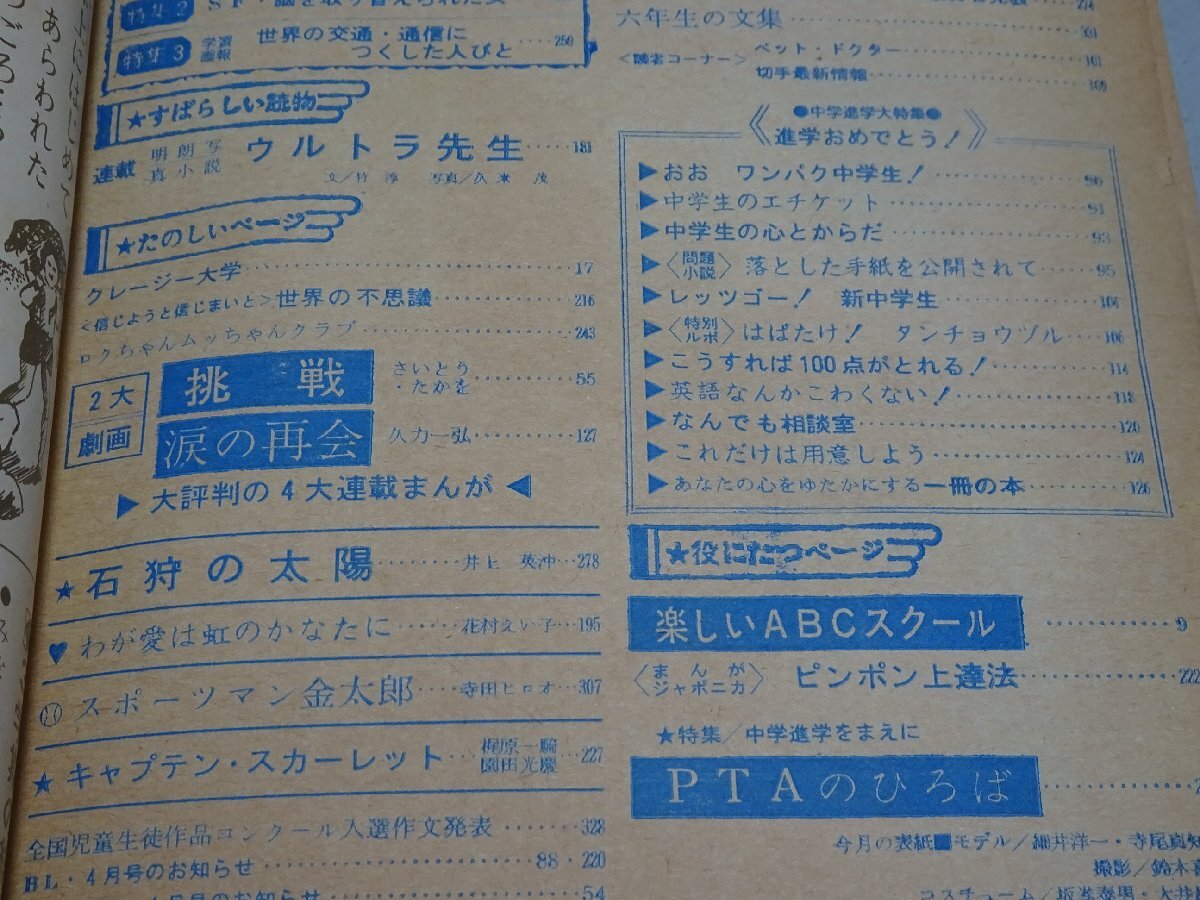 特集2 SF・脳を取り替えられた女
特集3 学習画報 世界の交通・通信に
つくした人びと……250
★すばらしい読物
連載 明朗写真小説 ウルトラ先生……181
文/竹 淳 写真/久米 茂
★たのしいページ
クレージー大学……17
<信じようと信じまいと>世界の不思議……216
ロクちゃんムッちゃんクラブ……243
2大劇画
挑戦 さいとう・たかを……55
涙の再会 久力一弘……127
▶大評判の4大連載まんが◀
★石狩の太陽……井上 英沖…278
♥わが愛は虹のかなたに……花村えい子…195
スポーツマン金太郎……寺田ヒロオ…307
★キャプテン・スカーレット……梶原一騎 園田光慶…227
全国児童生徒作品コンクール入選作文発表……328
BL・4月号のお知らせ……88・220
六年生の文集……
<読者コーナー> ペット・ドクター……101
切手最新情報……
●中学進学大特集●
《進学おめでとう!》
▶おお ワンパク中学生!……90
▶中学生のエチケット……91
▶中学生の心とからだ……93
▶〈問題小説〉落とした手紙を公開されて……95
▶レッツゴー! 新中学生……
▶〈特別ルポ〉はばたけ! タンチョウヅル……106
▶こうすれば100点がとれる!……114
▶英語なんかこわくない!……118
▶なんでも相談室……120
▶これだけは用意しよう……124
▶あなたの心をゆたかにする一冊の本……126
★役にたつページ
楽しいABCスクール……9
〈まんがジャポニカ〉 ピンポン上達法……222
★特集/中学進学をまえに
PTAのひろば……
今月の表紙■モデル/細井洋一・寺尾真知
撮影/鈴木
コスチューム/
あらわれた